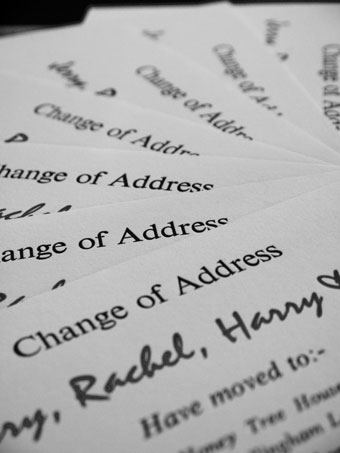 Change of Add
Change of Add
Change of Addr
Change of Addre
hange of Address
ange of Address
Change of Address
ry, Rachel, Harry
Have moved to:-
oney Tree House
ingham L